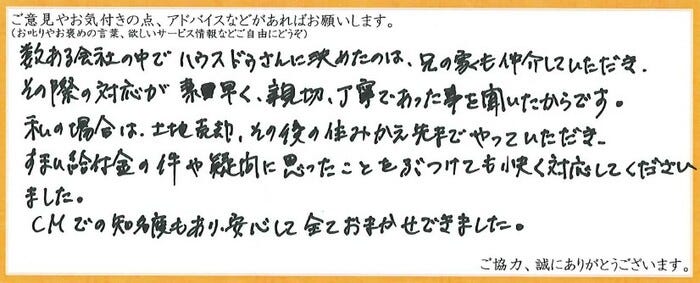 ご意見やお気付きの点、アドバイスなどがあればお願いします。
(お叱りやお褒めの言葉、欲しいサービス情報などご自由にどうぞ)
数ある会社の中でハウスドゥさんに決めたのは、兄の家も仲介していただき、
その際の対応が素早く、親切、丁寧であった事を聞いたからです。
私の場合は、土地売却、その後の住みかえ先までやっていただき、
すまい給付金の件や疑問に思ったことをぶつけても快く対応してください
ました。
CMでの知名度もあり、安心して全ておまかせできました。
ご協力、誠にありがとうございます。